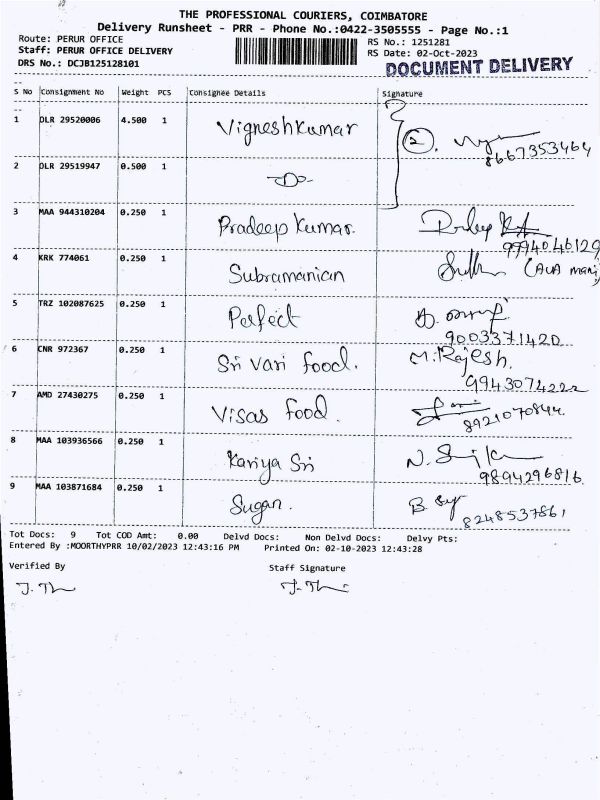 THE PROFESSIONAL COURIERS, COIMBATORE
Delivery Runsheet - PRR - Phone No.:0422-3505555 - Page No.:1
Route: PERUR OFFICE
Staff: PERUR OFFICE DELIVERY
DRS No.: DCJB125128101
RS No.: 1251281
RS Date: 02-Oct-2023
DOCUMENT DELIVERY
S No Consignment No Weight PCS Consignee Details Signature
1 DLR 29520006 4.500 1 Vigneshkumar 2
8667353464
2 DLR 29519947 0.500 1
3 MAA 944310204 0.250 1 Pradeep Kumar.
9994046129
4 KRK 774061 0.250 1 Subramanian
5 TRZ 102087625 0.250 1 Perfect
9003371420
6 CNR 972367 0.250 1 Sri Vari food. M. Rajesh.
9943074222
7 AMD 27430275 0.250 1 Visas food.
8921070844
8 MAA 103936566 0.250 1 Kariya Sri
9894296816
9 MAA 103871684 0.250 1 Sugan.
8248537861
Tot Docs: 9 Tot COD Amt: 0.00 Delvd Docs: Non Delvd Docs: Delvy Pts:
Entered By :MOORTHYPRR 10/02/2023 12:43:16 PM Printed On: 02-10-2023 12:43:28
Verified By Staff Signature